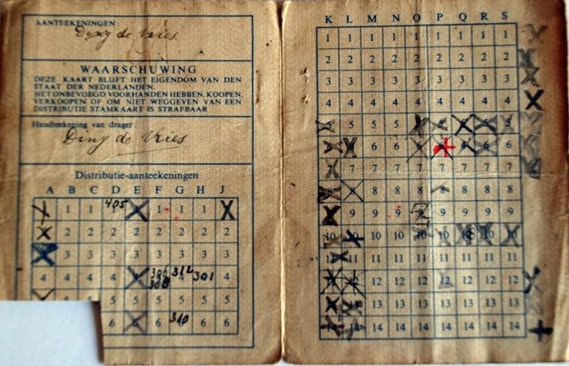 AANTEEKENINGEN
de Vries
WAARSCHUWING
DEZE KAART BLIJFT HET EIGENDOM VAN DEN
STAAT DER NEDERLANDEN.
HET ONBEVOEGD VOORHANDEN HEBBEN, KOOPEN,
VERKOOPEN OF OM NIET WEGGEVEN VAN EEN
DISTRIBUTIE STAMKAART IS STRAFBAAR
Handteekening van drager
de Vries
Distributie-aanteekeningen
A B C D E F G H J
1 1 405 1 1 1
2 2 2 2 2 2 2 2
3 3 3 3 3 3 3 3
4 4 4 4 306 308 312 301 4
5 5 5 5 5 5
6 6 310 6 6
K L M N O P Q R S
1 1 1 1 1 1 1 1 1
2 2 2 2 2 2 2 2 2
3 3 3 3 3 3 3 3 3
4 4 4 4 4 4 4 4 4
5 5 5
6 6
7 7 7 7 7 7 7 7
8 8 8 8 8 8 8
9 9 9 9 9 9 9
10 10 10 10 10
11 11 11 11 11 11 11
12 12 12 12 12 12 12
13 13 13 13 13 13 13
14 14 14 14 14 14 14